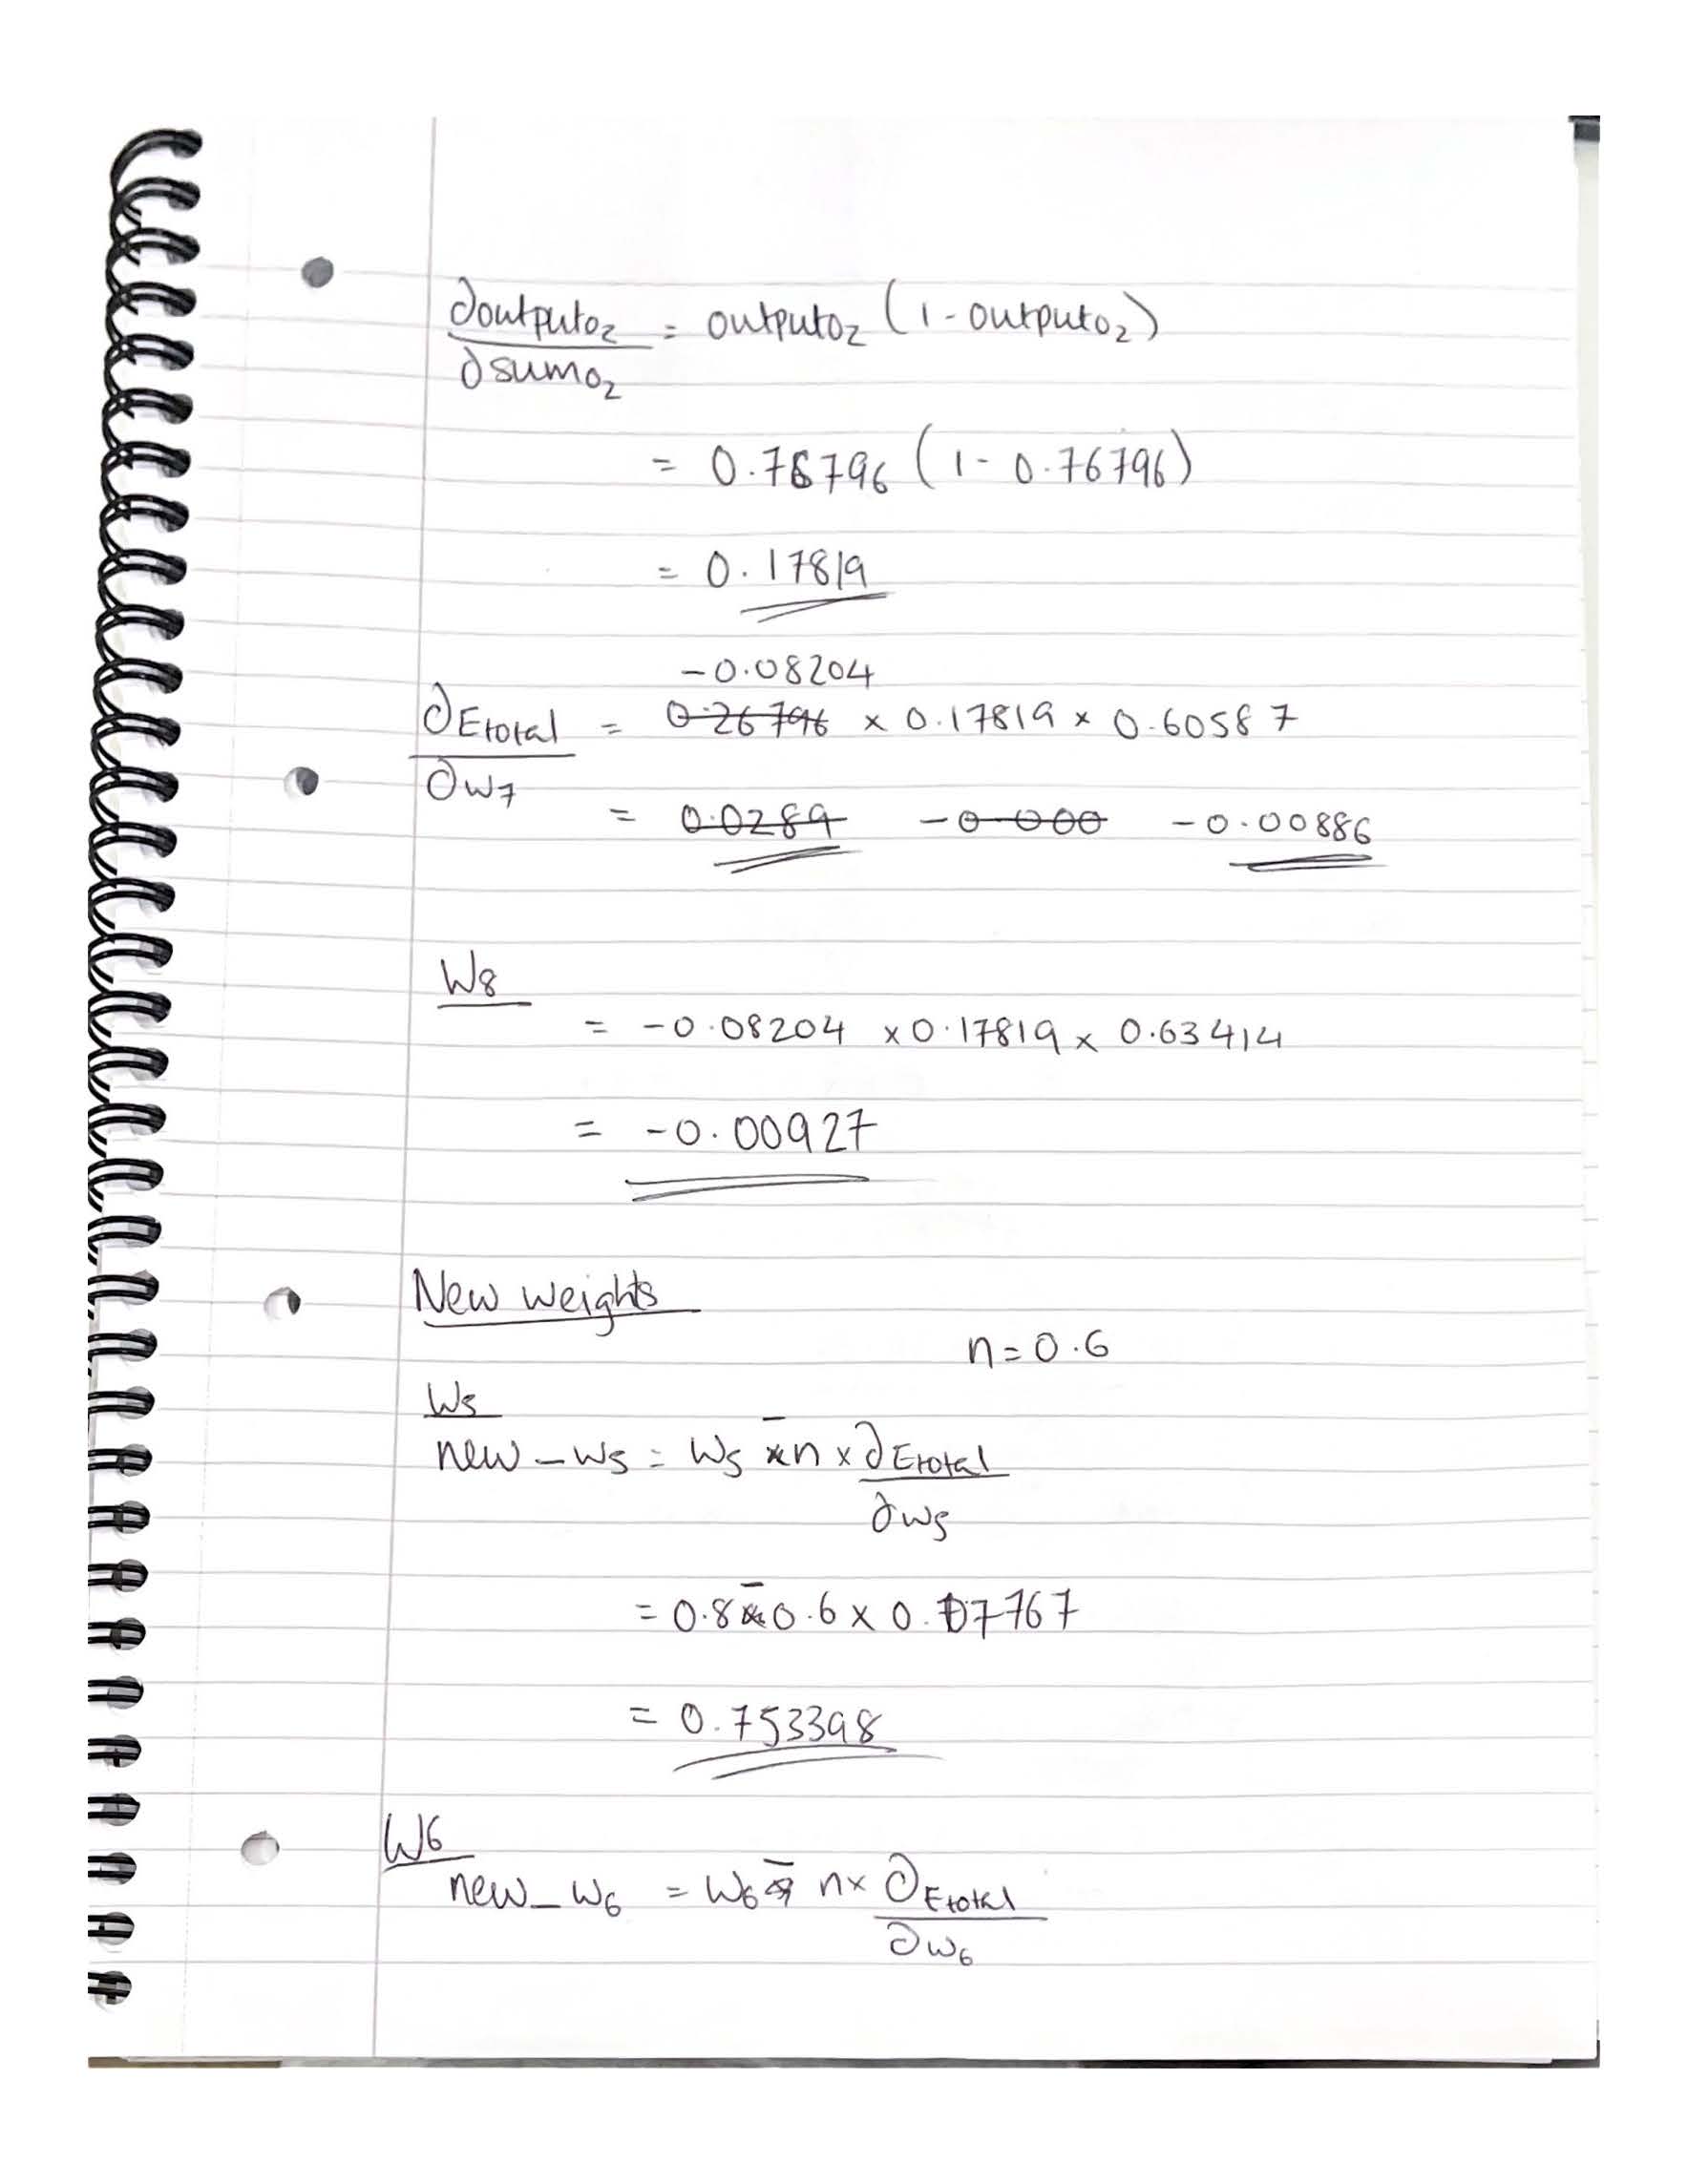 ∂outputo2 / ∂sumo2 = outputo2 (1 - outputo2)
= 0.76796 (1 - 0.76796)
= 0.17819
-0.08204
∂Etotal / ∂w7 = 0.26796 × 0.17819 × 0.60587
= 0.0289 -0.000 -0.00886
W8
= -0.08204 × 0.17819 × 0.63414
= -0.00927
New weights
n = 0.6
W5
new_w5 = W5 - n × ∂Etotal / ∂w5
= 0.8 - 0.6 × 0.07767
= 0.753398
W6
new_w6 = W6 - n × ∂Etotal / ∂w6